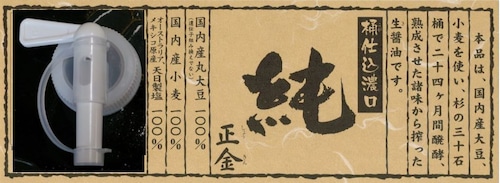 本品は、国内産大豆、
小麦を使い、杉の三十石
桶で二十四ヶ月間醗酵、
熟成させた諸味から搾った
生醤油です。
桶仕込濃口
純
正金
国内産丸大豆 100%
(遺伝子組み換えでない)
国内産小麦 100%
オーストラリア、
メキシコ原産 天日製塩 100%